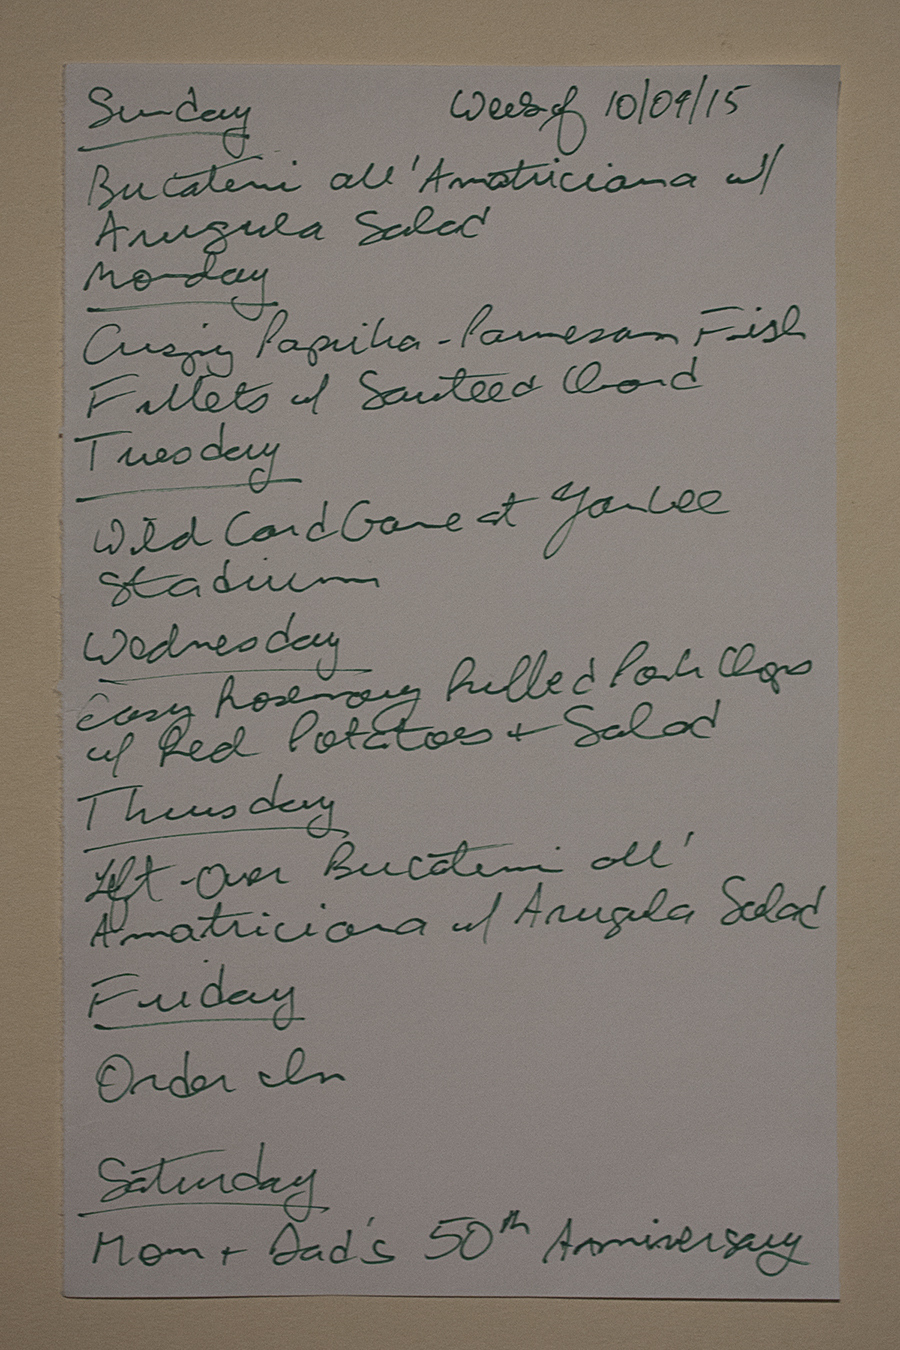 Sunday Week of 10/09/15
Bucatini all'Amatriciana w/
Arugula Salad
Monday
Crispy Paprika-Parmesan Fish
Fillets w/ Sauteed Chard
Tuesday
Wild Card Game at Yankee
Stadium
Wednesday
Easy Rosemary Rubbed Pork Chops
w/ Red Potatoes + Salad
Thursday
Left-Over Bucatini all'
Amatriciana w/ Arugula Salad
Friday
Order In
Saturday
Mom + Dad's 50th Anniversary